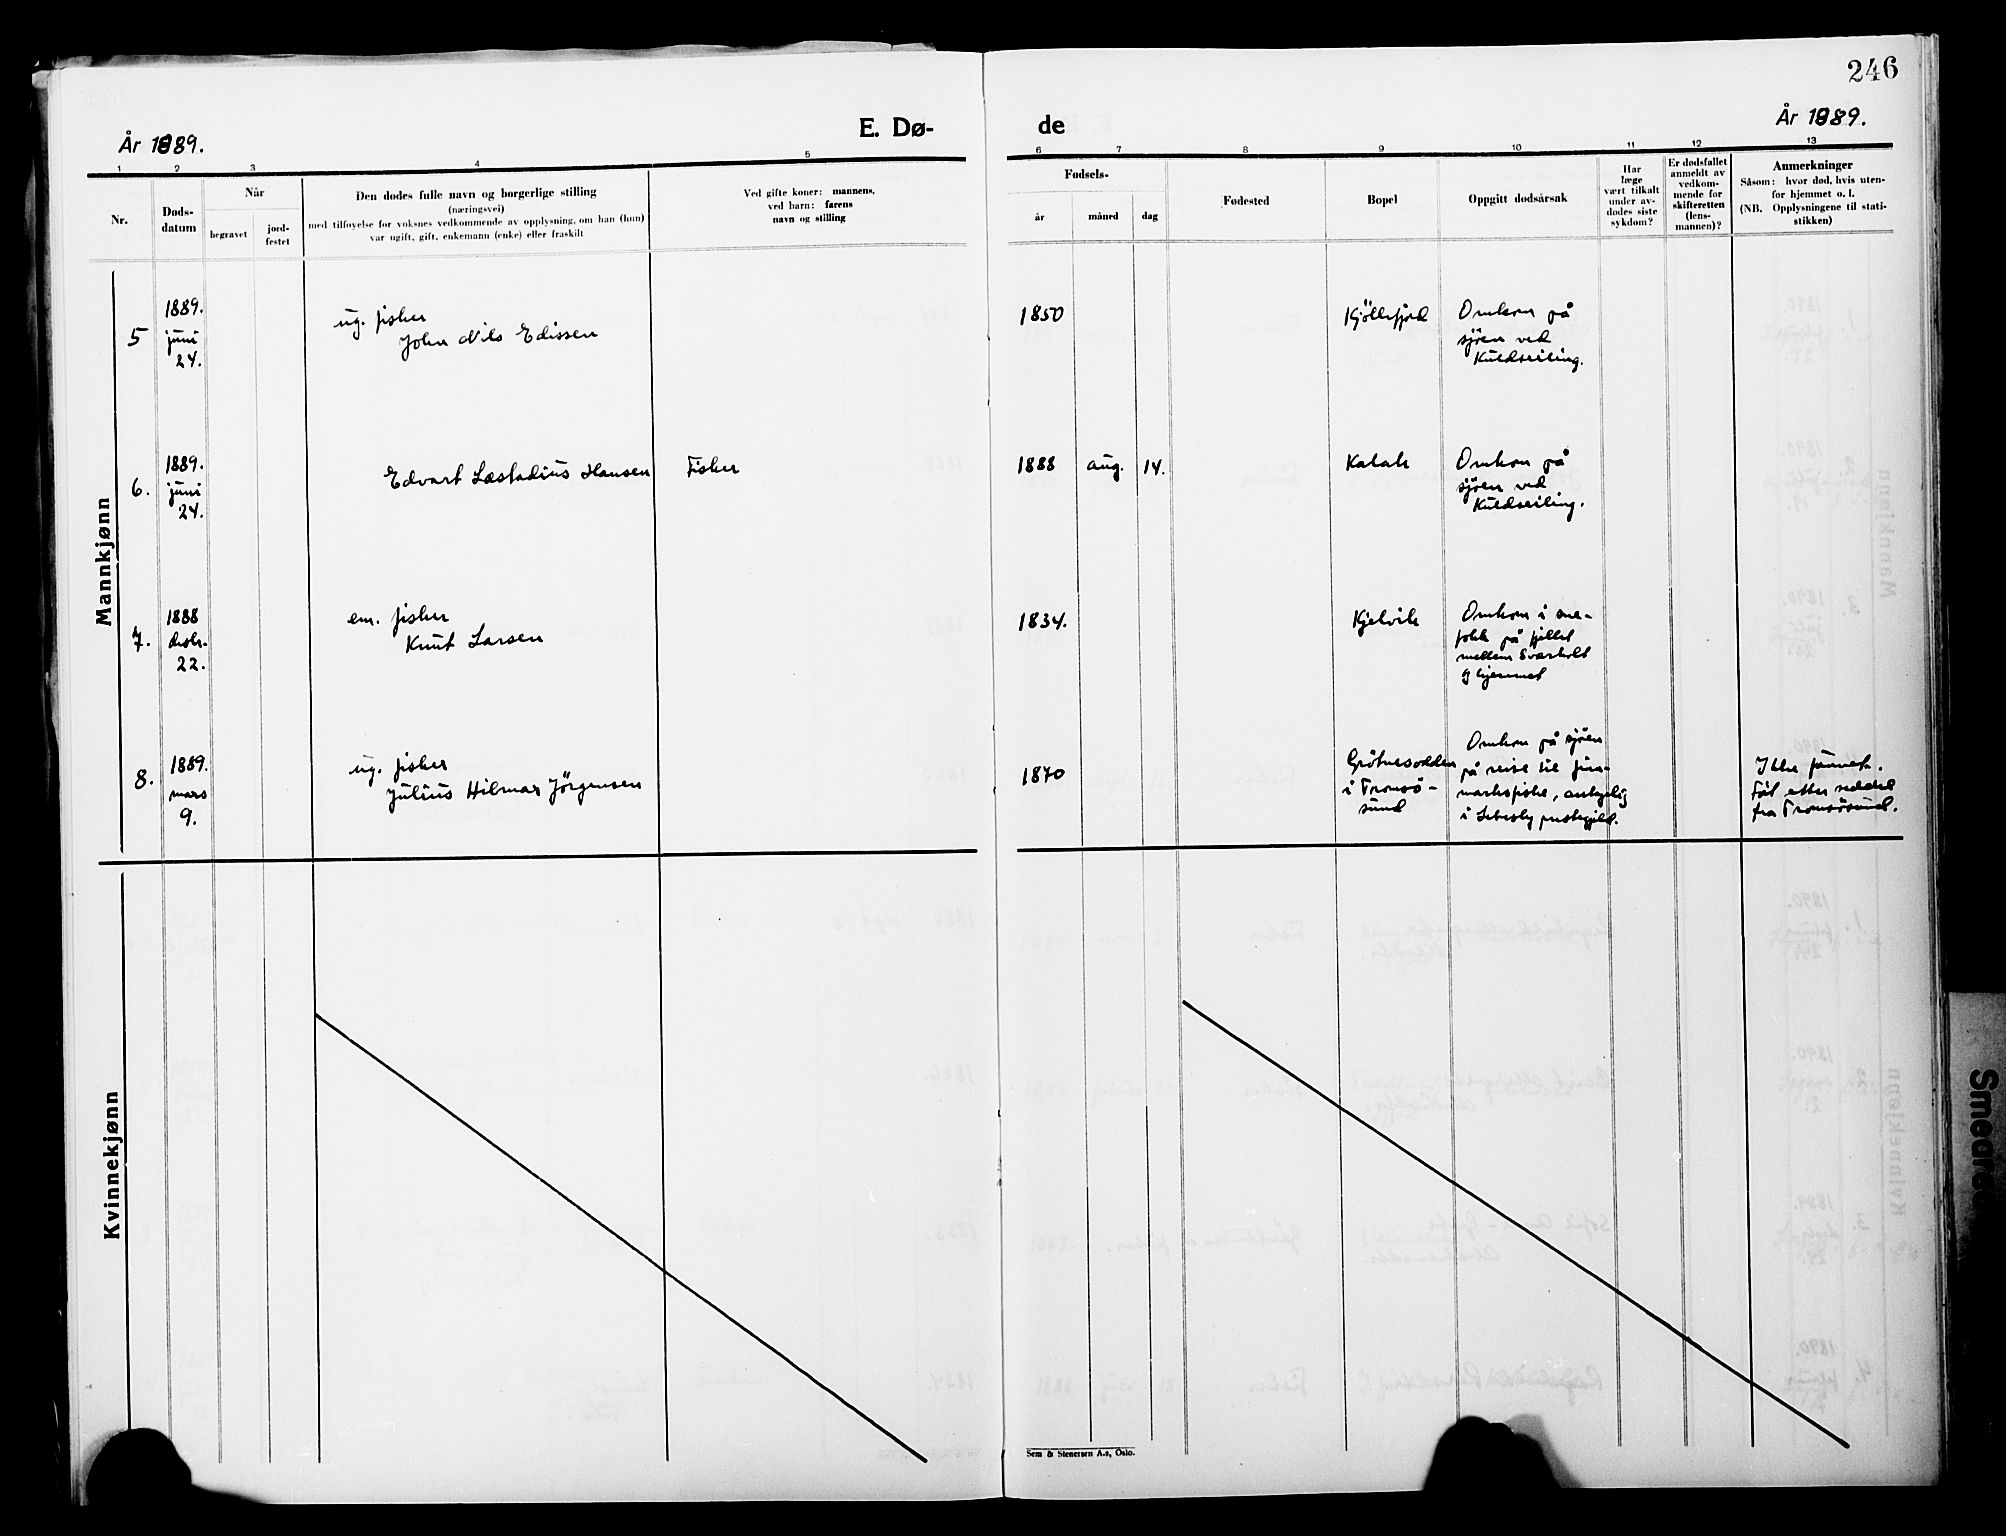 246
År 1889.
E. Dø-
de
År 1889.
1 2 3 4 5
6 7 8 9 10 11 12 13
Nr.
Døds-
datum
Når
begravet
jord-
festet
Den dødes fulle navn og borgerlige stilling
(næringsvei)
med tilføyelse for voksnes vedkommende av opplysning, om han (hun)
var ugift, gift, enkemann (enke) eller fraskilt
Ved gifte koner: mannens,
ved barn: farens
navn og stilling
Fødsels-
år
måned
dag
Fødested
Bopel
Oppgitt dødsårsak
Har
læge
vært tilkalt
under av-
dødes siste
sykdom?
Er dødsfallet
anmeldt av
vedkom-
mende for
skifteretten
(lens-
mannen)?
Anmerkninger
Såsom: hvor død, hvis uten-
for hjemmet o. l.
(NB. Opplysningene til stati-
stikken)
Mannkjønn
5
1889.
juni
24.
ug. fisker
John Nils Edissen
1850
Kjöllefjord
Omkom på
sjöen ved
Kuldseiling.
6.
1889.
juni
24.
Edvart Læstadius Hansen
Fisker
1888 aug. 14.
Kalak
Omkom på
sjöen ved
Kuldseiling.
7.
1888
desbr.
22.
em. fisker
Knut Larsen
1834.
Kjelvik
Omkom i sne-
fokk på fjellet
mellem Sværholt
og hjemmet
8.
1889.
mars
9.
ug. fisker
Julius Hilmar Jörgensen
1870
Grötnesodden
i Tromsö-
sund
Omkom på sjöen
på reise til Finn-
marksfiske, antagelig
i Lebesby prestegjeld.
Ikke funnet.
Föt etter seddel
fra Tromsösund.
Kvinnekjønn
Sem & Stenersen A.s, Oslo.